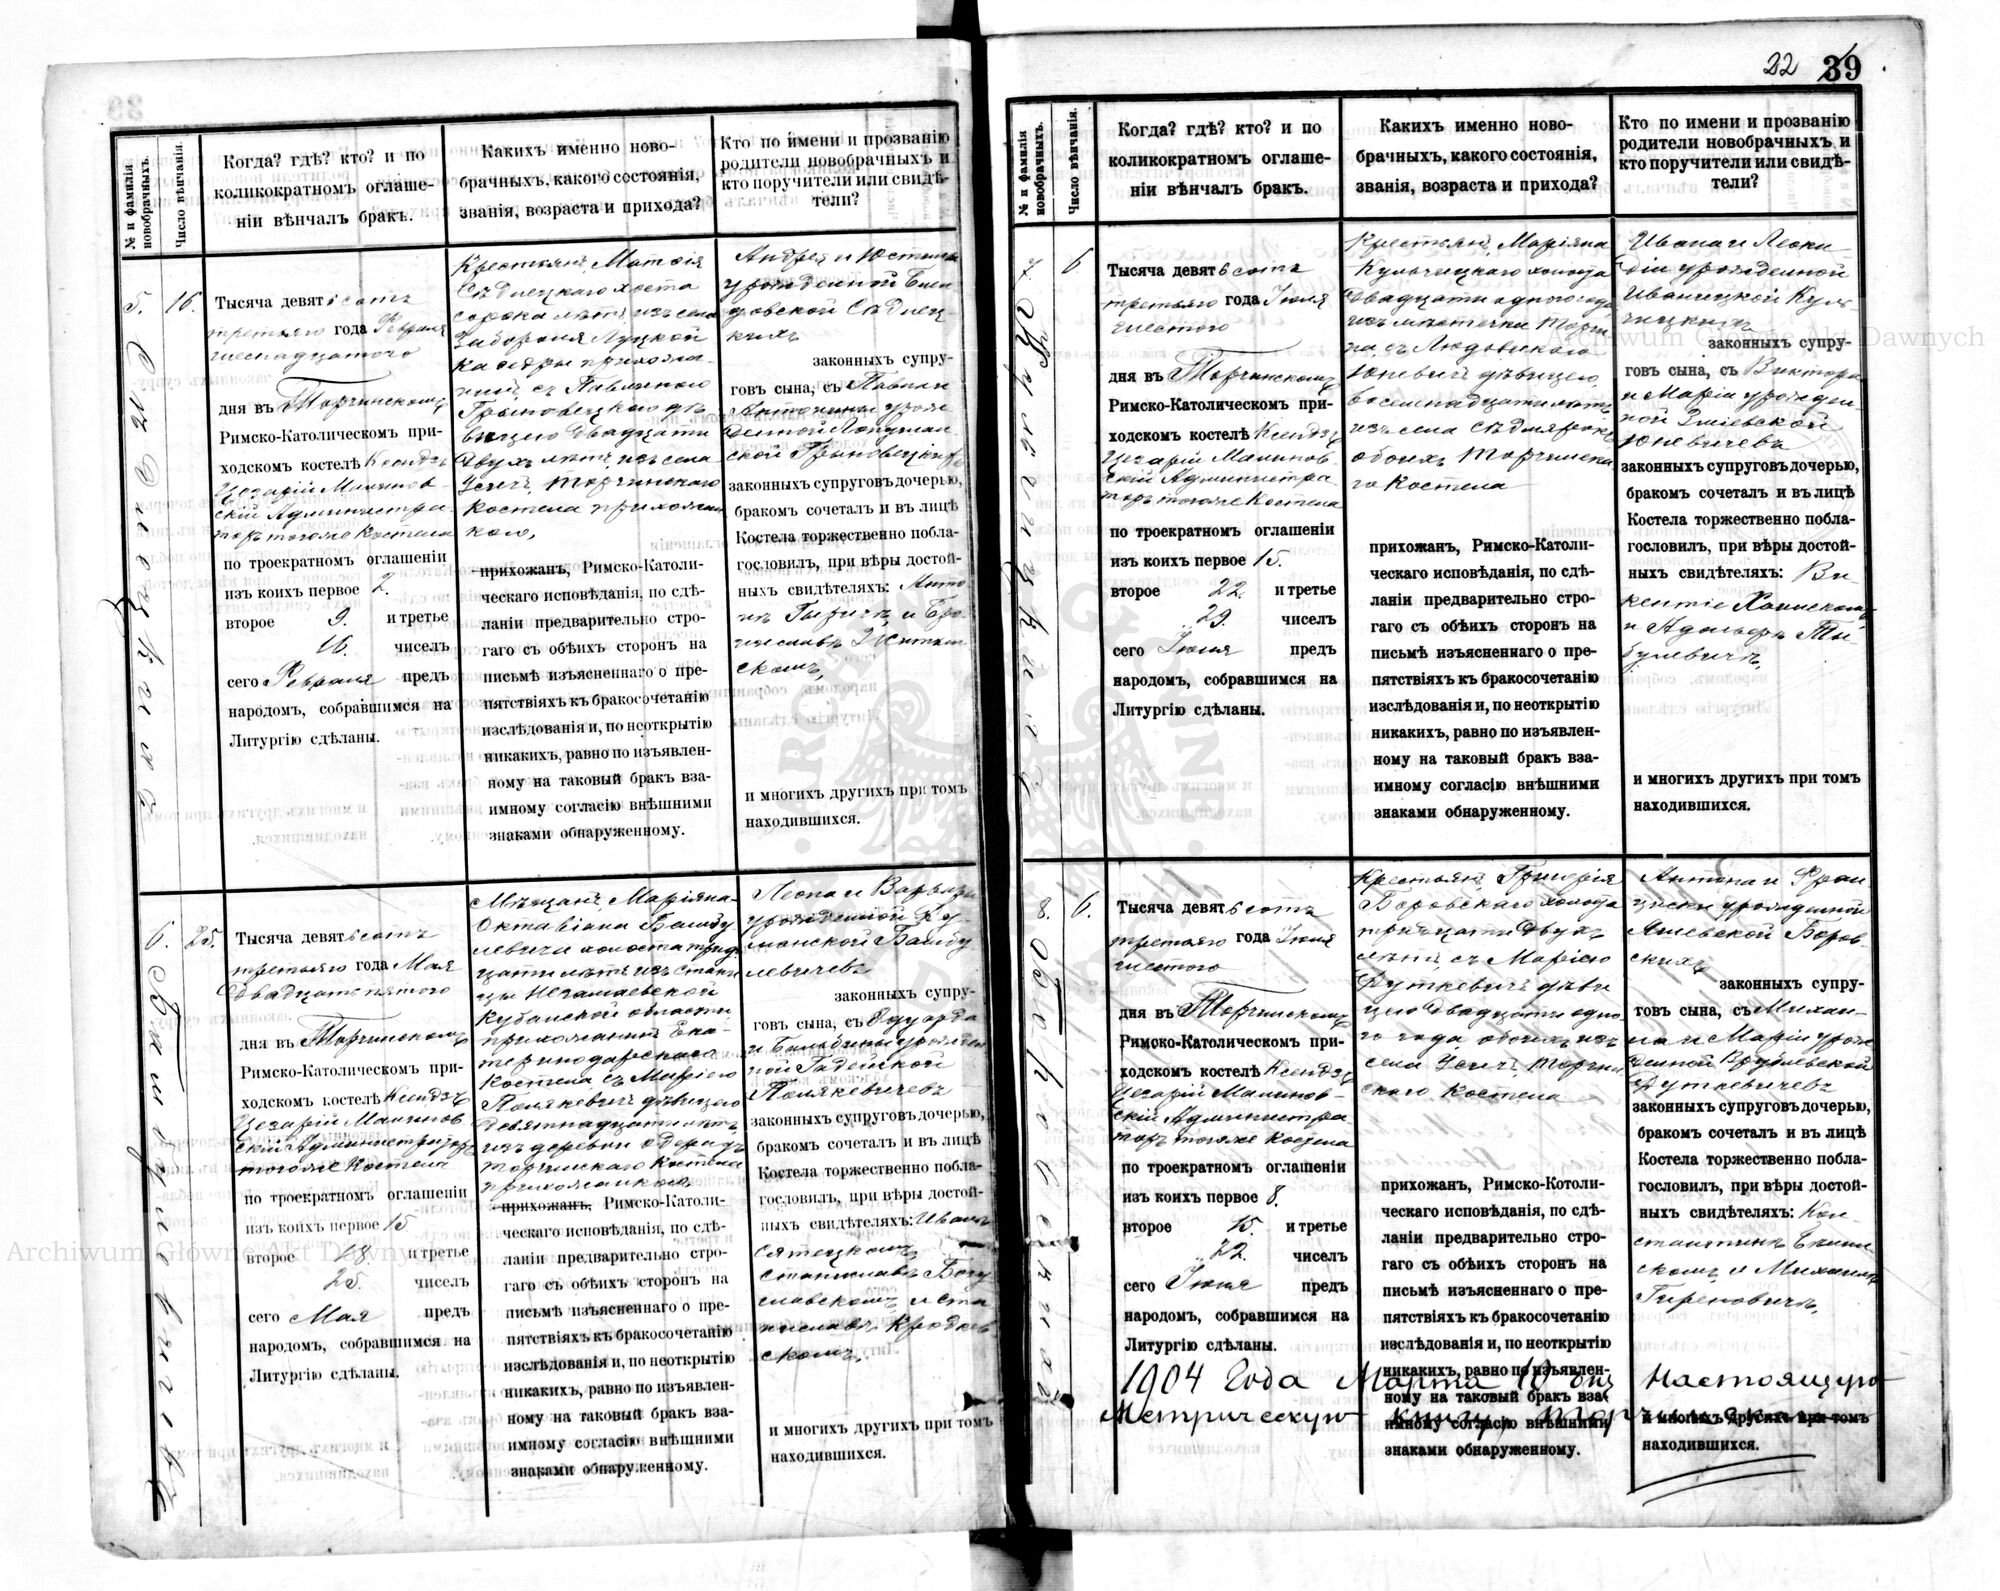 № и фамилія новобрачныхъ.
Число вѣнчанія.
Когда? гдѣ? кто? и по
коликократномъ оглаше-
ніи вѣнчалъ бракъ.
Какихъ именно ново-
брачныхъ, какого состоянія,
званія, возраста и прихода?
Кто по имени и прозванію
родители новобрачныхъ и
кто поручители или свидѣ-
тели?
5.
16.
Тысяча девятьсотъ
третьяго года Февраля
шеснадцатого
дня въ Торчинскомъ
Римско-Католическомъ при-
ходскомъ костелѣ Ксендзъ
Цезарій Малинов-
скій Администра-
торъ тогоже Костела
по троекратномъ оглашеніи
изъ коихъ первое 2.
второе 9. и третье
16. чиселъ
сего Февраля предъ
народомъ, собравшимся на
Литургію сдѣланы.
Крестьянъ, Матѳія
Сѣднецкаго холоста
сорока лѣтъ, изъ села
Забороля Луцкой
Каѳедры прихожа-
нина, съ Павлиною
двухъ лѣтъ, изъ села
Усичъ, Торчинскаго
костела прихожан-
кою,
прихожанъ, Римско-Католи-
ческаго исповѣданія, по сдѣ-
ланіи предварительно стро-
гаго съ обѣихъ сторонъ на
письмѣ изъясненнаго о пре-
пятствіяхъ къ бракосочетанію
изслѣдованія и, по неоткрытію
никакихъ, равно по изъявлен-
ному на таковый бракъ вза-
имному согласію внѣшними
знаками обнаруженному.
Андрея и Юстины
урожденной
Сѣднец-
кихъ
законныхъ супру-
говъ сына, съ Павла и
Антонины урож-
денной
законныхъ супруговъ дочерью,
бракомъ сочеталъ и въ лицѣ
Костела торжественно побла-
гословилъ, при вѣры достой-
ныхъ свидѣтеляхъ: Анто-
и многихъ другихъ при томъ
находившихся.
6.
25.
Тысяча девятьсотъ
третьяго года Мая
двадцать пятого
дня въ Торчинскомъ
Римско-Католическомъ при-
ходскомъ костелѣ Ксендзъ
Цезарій Малинов-
скій Администраторъ
тогоже Костела
по троекратномъ оглашеніи
изъ коихъ первое 15
второе 18. и третье
25. чиселъ
сего Мая предъ
народомъ, собравшимся на
Литургію сдѣланы.
Мѣщанъ, Маріяна-
Октавіана Бамбу-
левича холоста трид-
цати лѣтъ, изъ стани-
цы Незамаевской
Кубанской области
прихожанина Ека-
теринодарскаго
Костела съ Маріею
Полякевичъ дѣвицею
девятнадцати лѣтъ,
изъ деревни Одерадъ
Торчинскаго Костела
прихожанкою,
прихожанъ, Римско-Католи-
ческаго исповѣданія, по сдѣ-
ланіи предварительно стро-
гаго съ обѣихъ сторонъ на
письмѣ изъясненнаго о пре-
пятствіяхъ къ бракосочетанію
изслѣдованія и, по неоткрытію
никакихъ, равно по изъявлен-
ному на таковый бракъ вза-
имному согласію внѣшними
знаками обнаруженному.
Леона и Варвары
урожденной Ку-
манской Бамбу-
левичевъ
законныхъ супру-
говъ сына, съ Эдуарда
и Бальбины урожден-
ной
Полякевичевъ
законныхъ супруговъ дочерью,
бракомъ сочеталъ и въ лицѣ
Костела торжественно побла-
гословилъ, при вѣры достой-
ныхъ свидѣтеляхъ: Иванъ
Станиславъ Богу-
славскомъ, и Ста-
ниславъ
скомъ,
и многихъ другихъ при томъ
находившихся.
22 39
№ и фамилія новобрачныхъ.
Число вѣнчанія.
Когда? гдѣ? кто? и по
коликократномъ оглаше-
ніи вѣнчалъ бракъ.
Какихъ именно ново-
брачныхъ, какого состоянія,
званія, возраста и прихода?
Кто по имени и прозванію
родители новобрачныхъ и
кто поручители или свидѣ-
тели?
7.
6
Тысяча девятьсотъ
третьяго года Іюля
шестого
дня въ Торчинскомъ
Римско-Католическомъ при-
ходскомъ костелѣ Ксендзъ
Цезарій Малинов-
скій Администра-
торъ тогоже Костела
по троекратномъ оглашеніи
изъ коихъ первое 15.
второе 22. и третье
29. чиселъ
сего Іюня предъ
народомъ, собравшимся на
Литургію сдѣланы.
Крестьянъ, Маріяна
Кульчицкаго холоста
двадцати одного года
изъ мѣстечка Торчи-
на, съ Людовикою
Юневичъ дѣвицею,
восемнадцати лѣтъ
изъ села Сѣдмярокъ
обоихъ Торчинска-
го Костела
прихожанъ, Римско-Католи-
ческаго исповѣданія, по сдѣ-
ланіи предварительно стро-
гаго съ обѣихъ сторонъ на
письмѣ изъясненнаго о пре-
пятствіяхъ къ бракосочетанію
изслѣдованія и, по неоткрытію
никакихъ, равно по изъявлен-
ному на таковый бракъ вза-
имному согласію внѣшними
знаками обнаруженному.
Ивана и Леока-
діи урожденной
Иваницкой Куль-
чицкихъ
законныхъ супру-
говъ сына, съ Виктора
и Маріи урожден-
ной Зміевской
Юневичевъ
законныхъ супруговъ дочерью,
бракомъ сочеталъ и въ лицѣ
Костела торжественно побла-
гословилъ, при вѣры достой-
ныхъ свидѣтеляхъ: Ви-
кентіе Хоинскомъ
и Адольфъ Ты-
булевичъ,
и многихъ другихъ при томъ
находившихся.
8.
6.
Тысяча девятьсотъ
третьяго года Іюля
шестого
дня въ Торчинскомъ
Римско-Католическомъ при-
ходскомъ костелѣ Ксендзъ
Цезарій Малинов-
скій Администра-
торъ тогоже Костела
по троекратномъ оглашеніи
изъ коихъ первое 8.
второе 15. и третье
22. чиселъ
сего Іюня предъ
народомъ, собравшимся на
Литургію сдѣланы.
Крестьянъ, Григорія
Боровскаго холоста
тридцати двухъ
лѣтъ, съ Маріею
Дуткевичъ дѣви-
цею двадцати одно-
го года, обоихъ изъ
села Усичъ, Торчин-
скаго Костела
прихожанъ, Римско-Котоли-
ческаго исповѣданія, по сдѣ-
ланіи предварительно стро-
гаго съ обѣихъ сторонъ на
письмѣ изъясненнаго о пре-
пятствіяхъ къ бракосочетанію
изслѣдованія и, по неоткрытію
никакихъ, равно по изъявлен-
ному на таковый бракъ вза-
имному согласію внѣшними
знаками обнаруженному.
Антона и Фран-
циски урожденной
Яшевской Боров-
скихъ
законныхъ супру-
говъ сына, съ Михаи-
ла и Маріи урож-
денной Врублевской
Дуткевичевъ
законныхъ супруговъ дочерью,
бракомъ сочеталъ и въ лицѣ
Костела торжественно побла-
гословилъ, при вѣры достой-
ныхъ свидѣтеляхъ: Кон-
стантинъ
скомъ, и Михаилъ
и многихъ другихъ при томъ
находившихся.
1904 года Марта 10 дня Настоящую
Метрическую книгу, Торчинскаго
Archiwum Główne Akt Dawnych
Archiwum Główne Akt Dawnych
ARCHIWUM GŁÓWNE